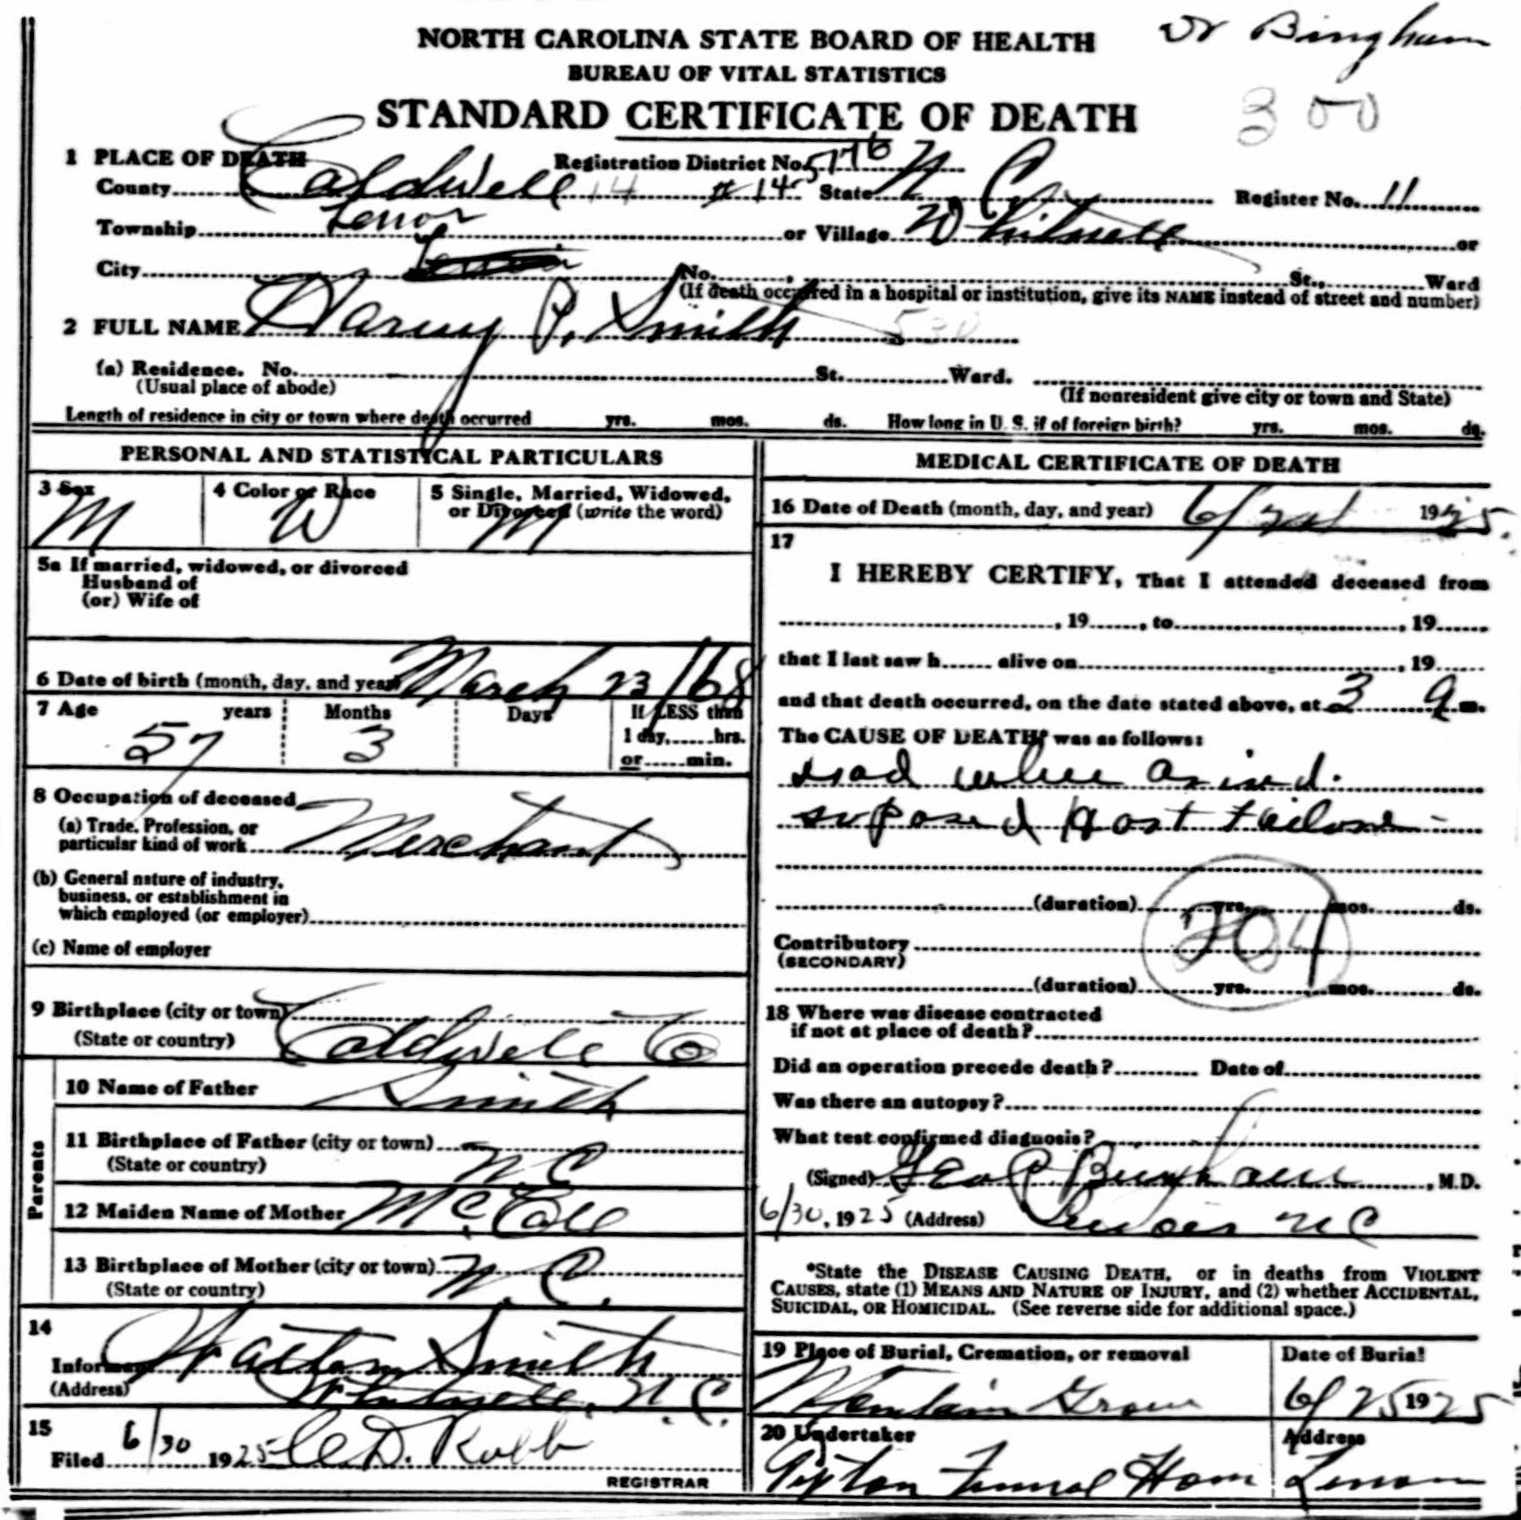 Dr Bingham
NORTH CAROLINA STATE BOARD OF HEALTH
BUREAU OF VITAL STATISTICS
STANDARD CERTIFICATE OF DEATH
300
1 PLACE OF DEATH Registration District No. 5776
County Caldwell 14 #14 State N C Register No. 11
Township Lenoir or Village Whitnell or
City No. , St., Ward
(If death occurred in a hospital or institution, give its NAME instead of street and number)
2 FULL NAME Harvy P. Smith 530
(a) Residence. No. St. Ward.
(Usual place of abode) (If nonresident give city or town and State)
Length of residence in city or town where death occurred yrs. mos. ds. How long in U. S. if of foreign birth? yrs. mos. ds.
PERSONAL AND STATISTICAL PARTICULARS
3 Sex 4 Color or Race 5 Single, Married, Widowed,
or Divorced (write the word)
M W M
5a If married, widowed, or divorced
Husband of
(or) Wife of
6 Date of birth (month, day, and year) March 23 /68
7 Age years Months Days If LESS than
57 3 1 day, hrs.
or min.
8 Occupation of deceased
(a) Trade, Profession, or
particular kind of work Merchant
(b) General nature of industry,
business, or establishment in
which employed (or employer)
(c) Name of employer
9 Birthplace (city or town)
(State or country) Caldwell Co
Parents
10 Name of Father Smith
11 Birthplace of Father (city or town)
(State or country) N C
12 Maiden Name of Mother McCall
13 Birthplace of Mother (city or town)
(State or country) N. C.
14
Informant Smith
(Address) Whitnell, N. C.
15
Filed 6/30 1925 C. D. Robb
REGISTRAR
MEDICAL CERTIFICATE OF DEATH
16 Date of Death (month, day, and year) 6/ 1925.
17
I HEREBY CERTIFY, That I attended deceased from
, 19 , to , 19
that I last saw h alive on , 19
and that death occurred, on the date stated above, at 3 a m.
The CAUSE OF DEATH* was as follows:
dead when arived.
suposed Hart Failure
(duration) yrs. mos. ds.
204
Contributory
(SECONDARY)
(duration) yrs. mos. ds.
18 Where was disease contracted
if not at place of death?
Did an operation precede death? Date of
Was there an autopsy?
What test confirmed diagnosis?
(Signed) Geo P Bingham , M.D.
6/30, 1925 (Address) Lenoir N C
*State the DISEASE CAUSING DEATH, or in deaths from VIOLENT
CAUSES, state (1) MEANS AND NATURE OF INJURY, and (2) whether ACCIDENTAL,
SUICIDAL, OR HOMICIDAL. (See reverse side for additional space.)
19 Place of Burial, Cremation, or removal Date of Burial
Mountain Grove 6/25 1925
20 Undertaker Address
Funeral Hom Lenoir